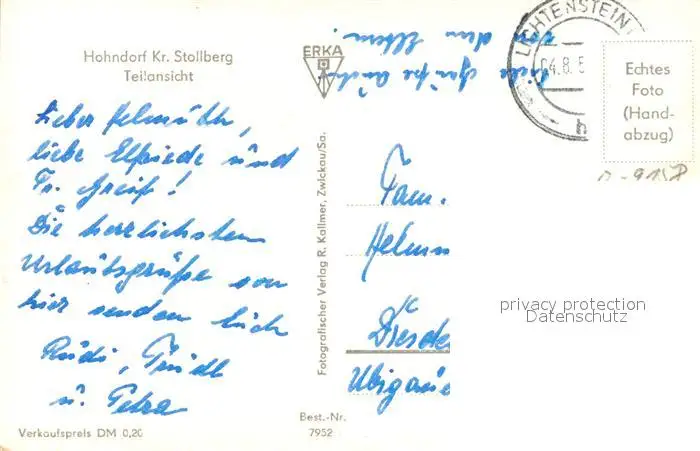 Hohndorf Kr. Stollberg
Teilansicht
Lieber Helmuth,
liebe Elfriede und
Fr. Greif!
Die herzlichsten
Urlaubsgrüße von
hier senden Euch
Rudi, Trudl
u. Petra
Verkaufspreis DM 0,20
ERKA
Fotografischer Verlag R. Kallmer, Zwickau/Sa.
Best.-Nr.
7952
Grüße auch
von den Eltern.
LICHTENSTEIN
04.8.5
h
Echtes
Foto
(Hand-
abzug)
Fam.
Helmu
Dresde
Übigau
privacy protection
Datenschutz